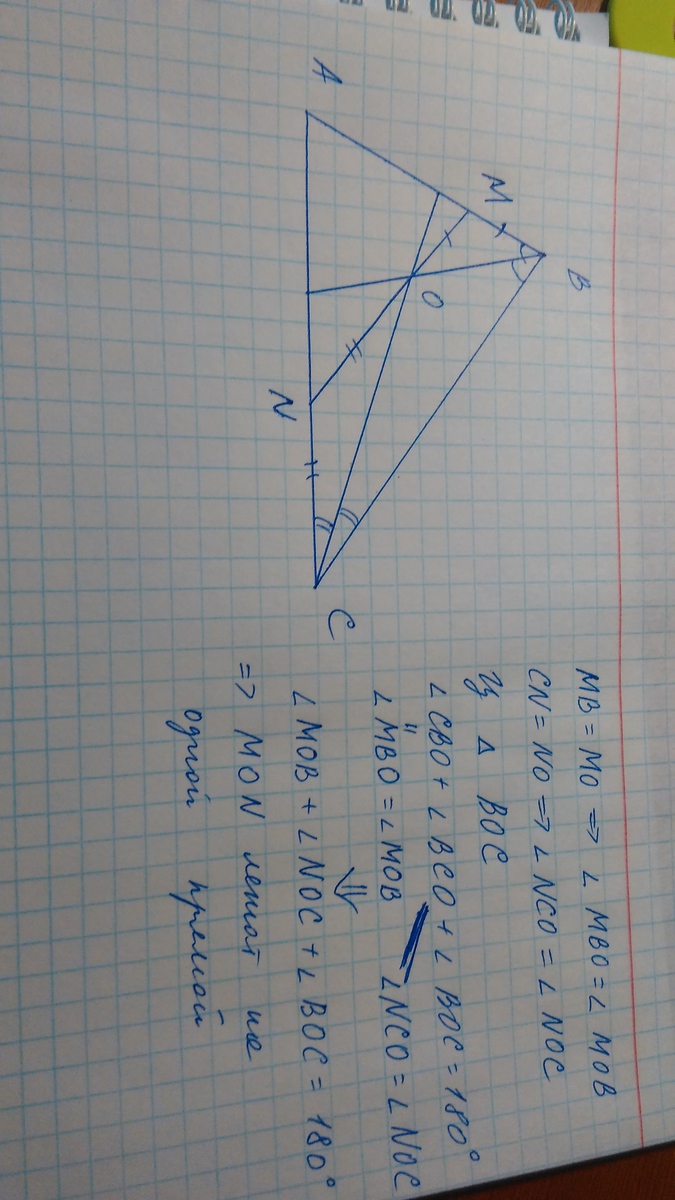 A
M
B
O
N
C
MB = MO => ∠ MBO = ∠ MOB
CN = NO => ∠ NCO = ∠ NOC
Из Δ BOC
∠CBO + ∠ BCO + ∠ BOC = 180°
∠ MBO = ∠ MOB ∠NCO = ∠ NOC
∠ MOB + ∠ NOC + ∠ BOC = 180°
=> MON лежат на
одной прямой